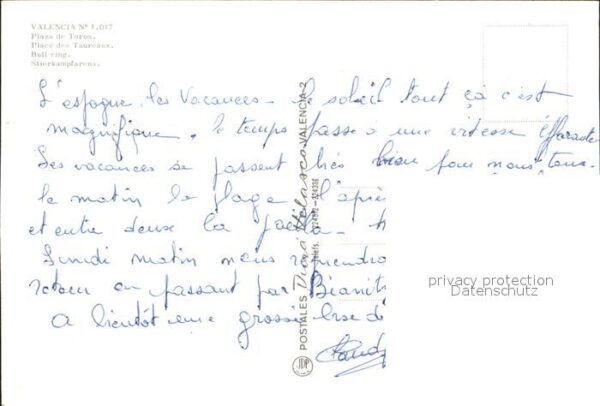 VALENCIA Nº 1.017
Plaza de Toros.
Place des Taureaux.
Bull ring.
Stierkampfarena.
L'espagne, les Vacances - le soleil tout ça c'est
magnifique. le temps passe à une vitesse effarante
Les vacances se passent très bien pour nous tous.
le matin la plage l'après
et entre deux la paella.
Lundi matin nous reprendro
retour en passant par Biarritz
A bientôt une grosse bise d
POSTALES Durá Velasco VALENCIA-2
Telefs.
JDP
privacy protection
Datenschutz